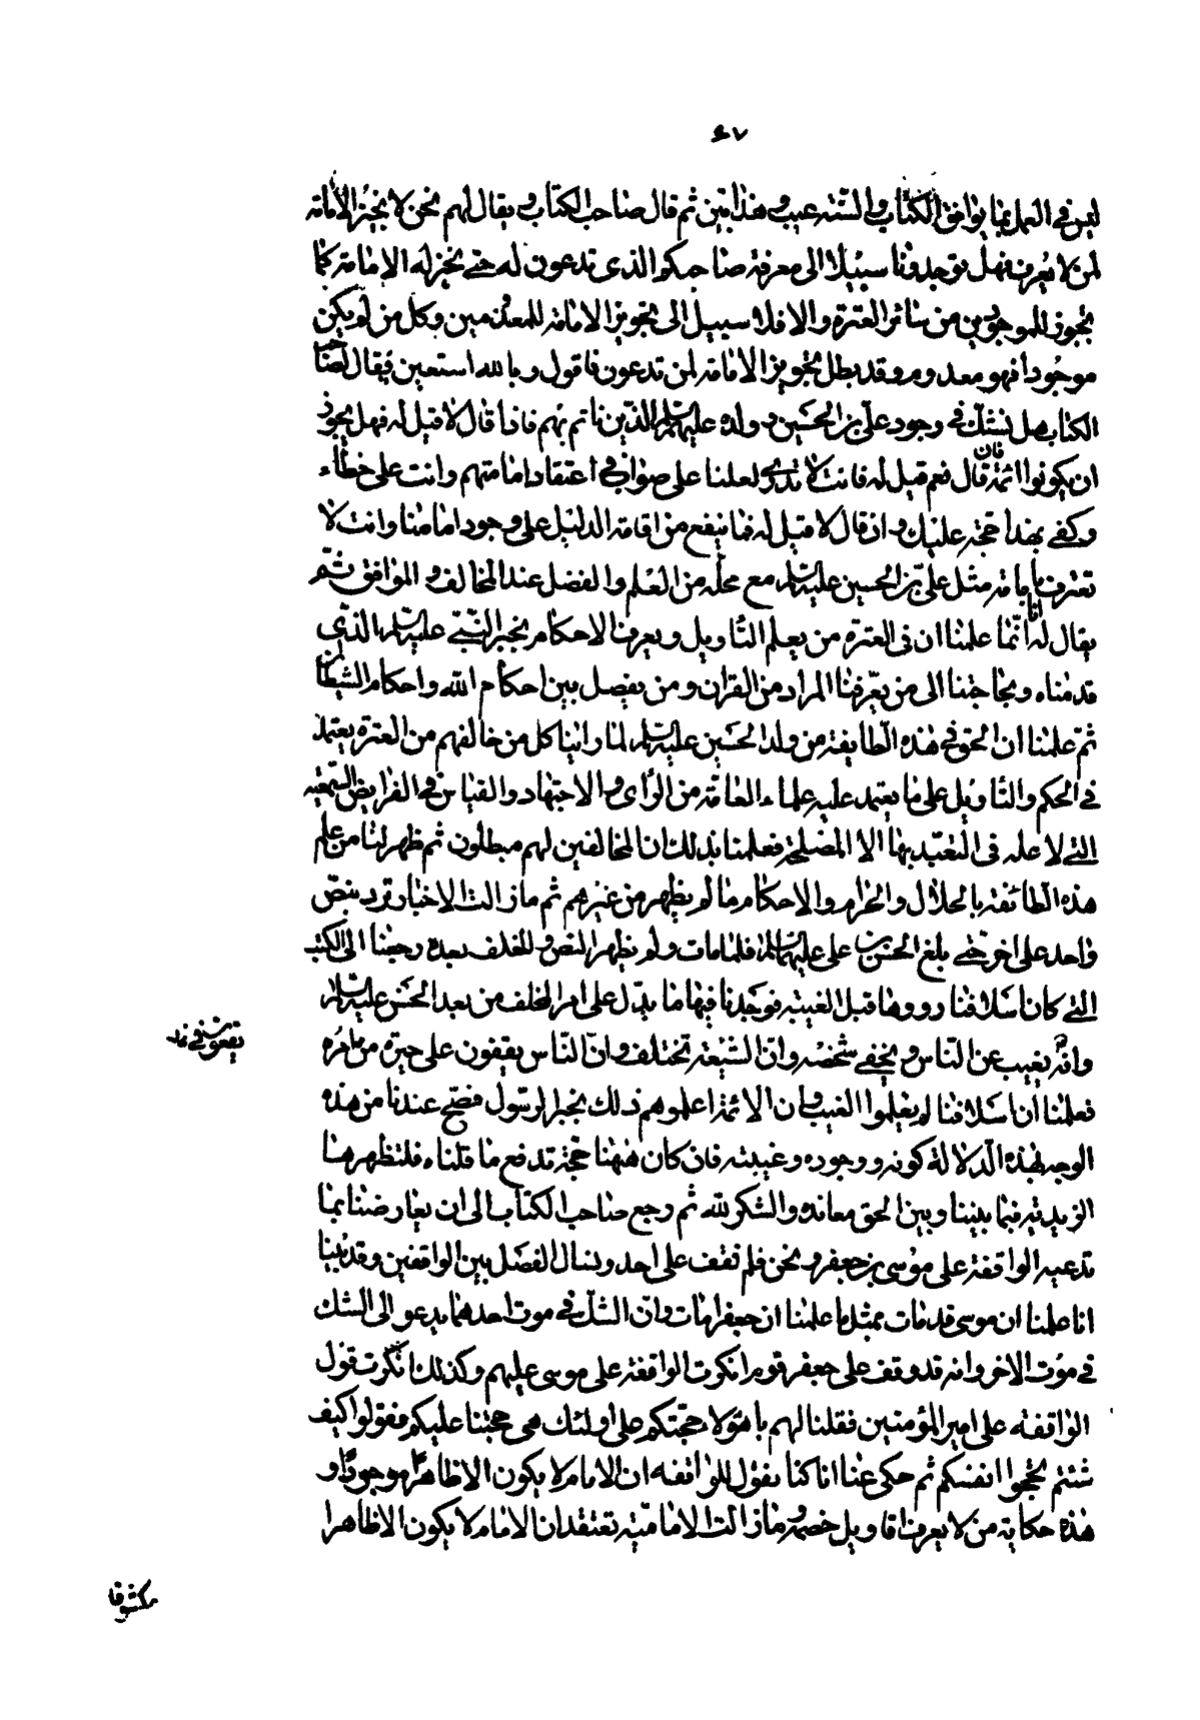 ٤٧
ليس في العمل بما يوافق الكتاب والسنة عيب وهذا بين ثم قال صاحب الكتاب ويقال لهم نحن لا نجيز الامامة
لمن لا يعرف فهل توجدونا سبيلا الى معرفة صاحبكم الذي تدعون له حتى نجيز له الامامة كما
نجوز للموجودين من سائر العترة والا فلا سبيل الى تجويز الامامة للمعدومين وكل من لم يكن
موجودا فهو معدوم وقد بطل تجويز الامامة لمن تدعون فاقول وبالله استعين فيقال لصاحب
الكتاب هل تشك في وجود علي بن الحسين وولده عليهم السلام الذين ناتم بهم فاذا قال لا قيل له فهل يجوز
ان يكونوا ائمة فان قال نعم قيل له فانت لا تدري لعلنا على صواب في اعتقاد امامتهم وانت على خطاء
وكفى بهذا حجة عليك وان قال لا قيل له فما ينفع من اقامة الدليل على وجود امامنا وانت لا
تعترف بامامة مثل علي بن الحسين عليه السلام مع محله من العلم والفضل عند المخالف والموافق ثم
يقال له انا انما علمنا ان في العترة من يعلم التاويل ويعرف الاحكام بخبر النبي عليه السلام الذي
قدمناه وبحاجتنا الى من يعرفنا المراد من القران ومن يفصل بين احكام الله واحكام الشيطان
ثم علمنا ان الحق في هذه الطايفة من ولد الحسين عليه السلام لما راينا كل من خالفهم من العترة يعتمد
في الحكم والتاويل على ما يعتمد عليه علماء العامة من الراى والاجتهاد والقياس في الفرايض السمعية
التي لا علة في التعبد بها الا المصلحة فعلمنا بذلك ان المخالفين لهم مبطلون ثم ظهر لنا من علم
هذه الطائفة بالحلال والحرام والاحكام ما لم يظهر من غيرهم ثم مازالت الاخبار ترد بنص
واحد على اخر حتى بلغ الحسن بن علي عليهما السلام فلما مات ولم يظهر النص والخلف بعده رجعنا الى الكتب
التي كان اسلافنا رووها قبل الغيبة فوجدنا فيها ما يدل على امر الخلف من بعد الحسن عليه السلام
وانه يغيب عن الناس ويخفى شخصه وان الشيعة تختلف وان الناس يقفون على حيرة من امره
يقعون في
فعلمنا ان اسلافنا لم يعلموا الغيب وان الائمة اعلموهم ذلك بخبر الرسول فصح عندنا من هذه
الوجه بهذه الدلالة كونه ووجوده وغيبته فان كان ههنا حجة تدفع ما قلناه فلتظهرها
الزيدية فما بيننا وبين الحق معاندة والشكر لله ثم رجع صاحب الكتاب الى ان يعارضنا بما
تدعيه الواقفة على موسى بن جعفر ونحن فلم نقف على احد ونسال الفصل بين الواقفين وقد بينا
انا علمنا ان موسى قد مات بمثل ما علمنا ان جعفرا مات وان الشك في موت احدهما يدعو الى الشك
في موت الاخر وانه قد وقف على جعفر قوم انكرت الواقفة على موسى عليهم وكذلك انكرت قول
الواقفة على امير المؤمنين فقلنا لهم يا هؤلاء حجتكم على اولئك هي حجتنا عليكم فقولوا كيف
شئتم تحجوا انفسكم ثم حكى عنا انا كنا نقول للواقفه ان الامام لا يكون الا ظاهرا موجودا و
هذه حكاية من لا يعرف اقاويل خصمه ومازالت الامامية تعتقد ان الامام لا يكون الا ظاهرا
مكشوفا